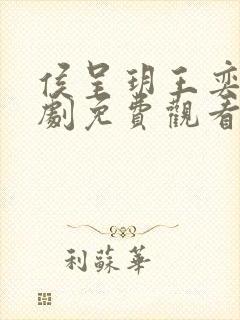 侯呈玥王奕
劇免費觀看
利蘇華